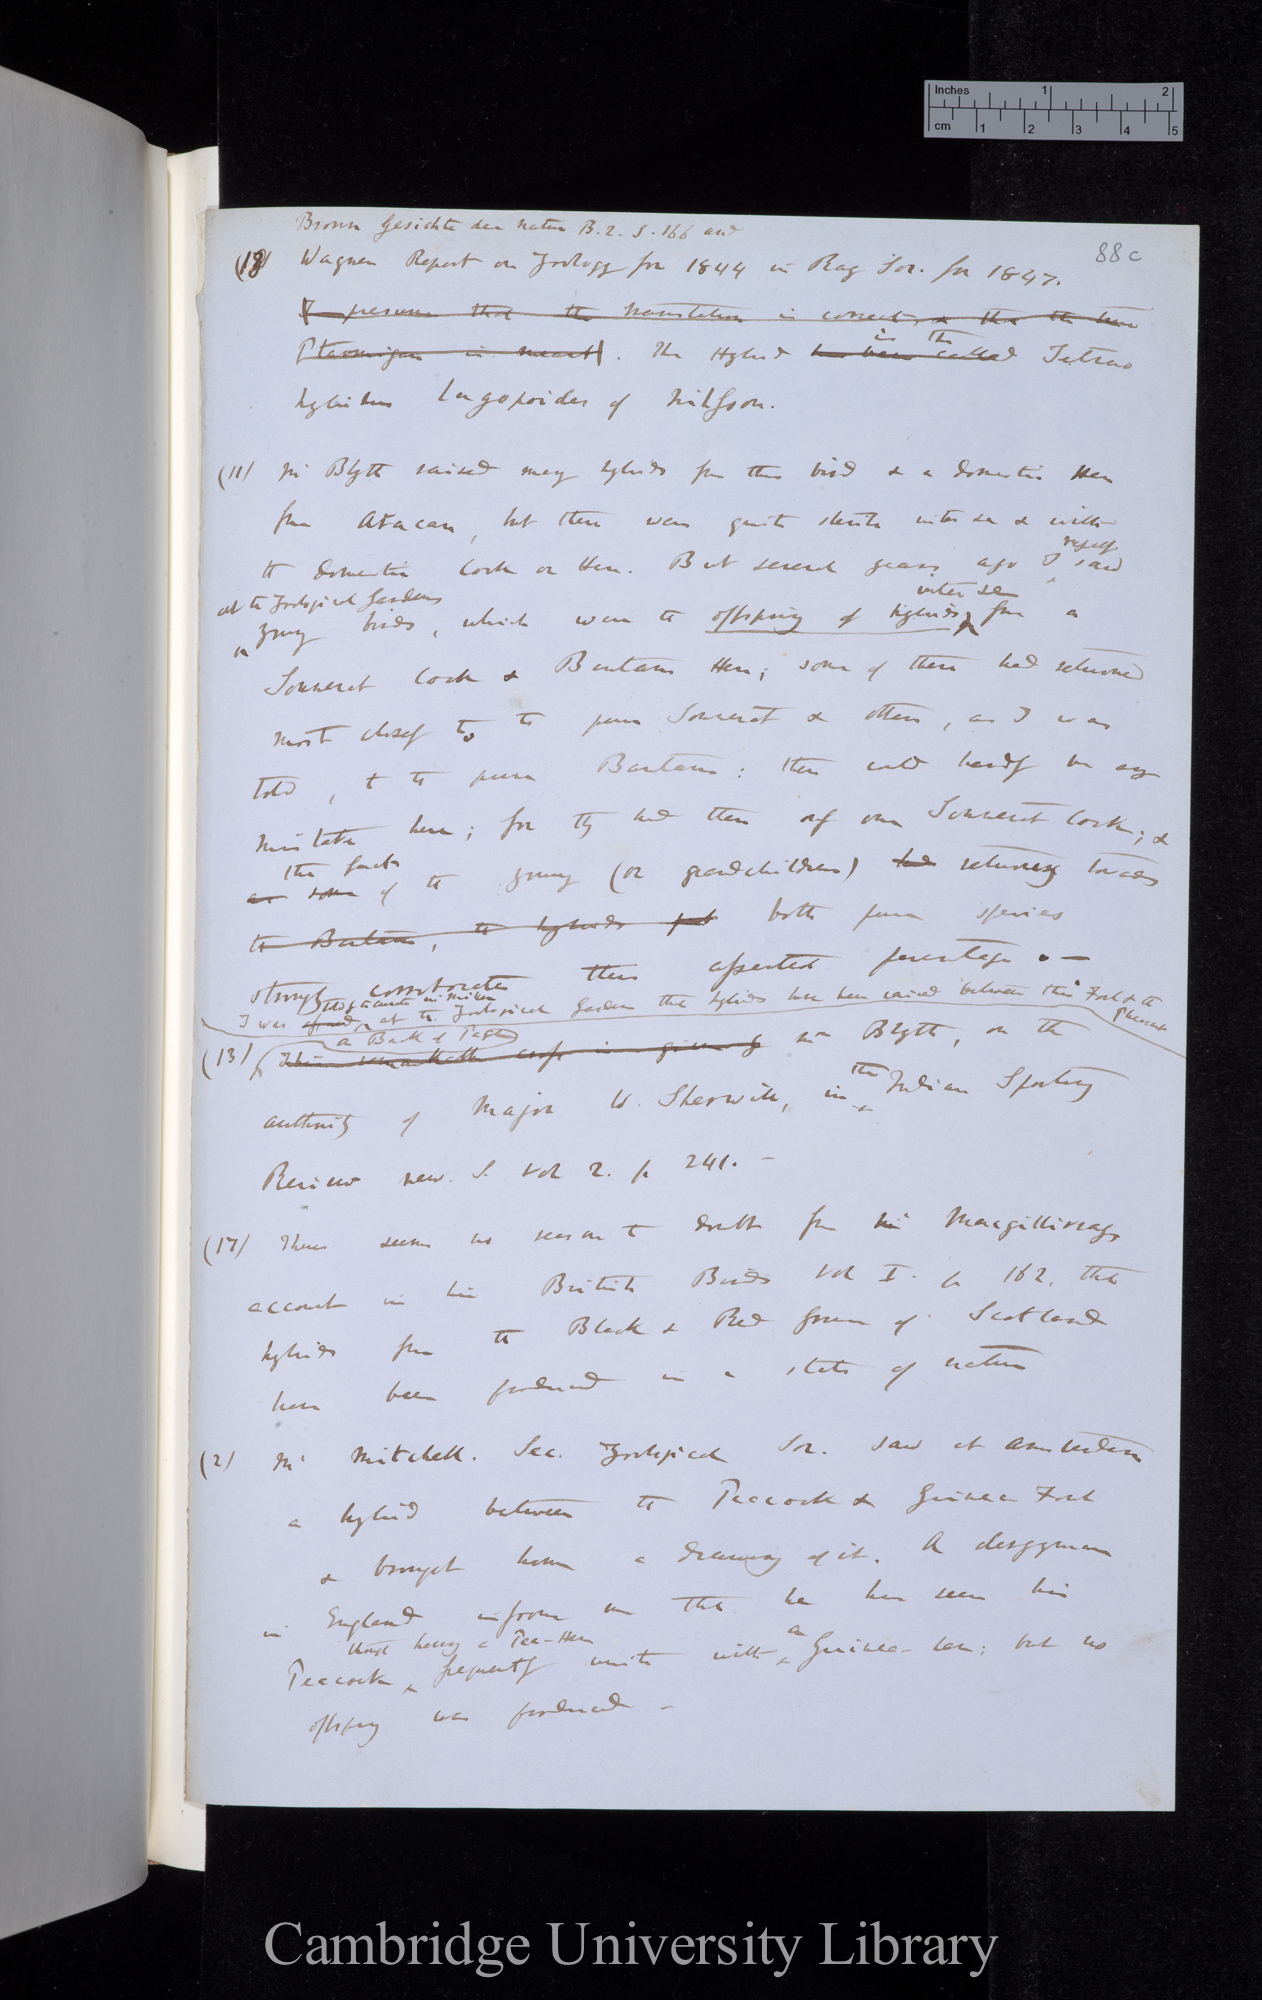 Inches 1 2
cm 1 2 3 4 5
88c
Bronn Gesichte der Natur B. 2. S. 166 and
(18) Wagner Report on Zoology for 1844 in Ray Soc. for 1847.
I presume that the translation is correct, & that the true
Ptarmigan is meant. The Hybrid has been called is the Tetrao
hybridus lagopoides of Nilsson.
(11) Mr Blyth raised many hybrids from this bird & a domestic Hen
from Aracan, but these were quite sterile inter se & with
the domestic Cock or Hen. But several years ago I myself saw
at the Zoological Gardens
young birds, which were the offspring of hybrids inter se from a
Sonnerat Cock & Bantam Hen; some of these had returned
most closely to the pure Sonnerat & others, as I was
told, to the pure Bantam: there could hardly be any
mistake here; for they had then only one Sonnerat Cock; &
the fact
as some of the young (or grandchildren) had returning towards
the Bantam, the hybrids both pure species
strongly corroborates their asserted parentage. —
I was at the Zoological Gardens that hybrids have been raised between this Fowl & the Pheasant
(13) This remarkable case is given by Mr Blyth, on the
authority of Major W. Sherwill, in the Indian Sporting
Review new. S. vol 2. p 241. —
(17) There seems no reason to doubt from Mr Macgillivray's
account in his British Birds vol I. p 162, that
hybrids from the Black & Red Grouse of Scotland
have been produced in a state of nature
(2) Mr Mitchell. Sec. Zoological Soc. saw at Amsterdam
a hybrid between the Peacock & Guinea Fowl
& brought home a drawing of it. A clergyman
in England informs me that he has seen his
Peacock, though having a Pea-Hen frequently unite with a Guinea-hen; but no
offspring was produced —
Cambridge University Library